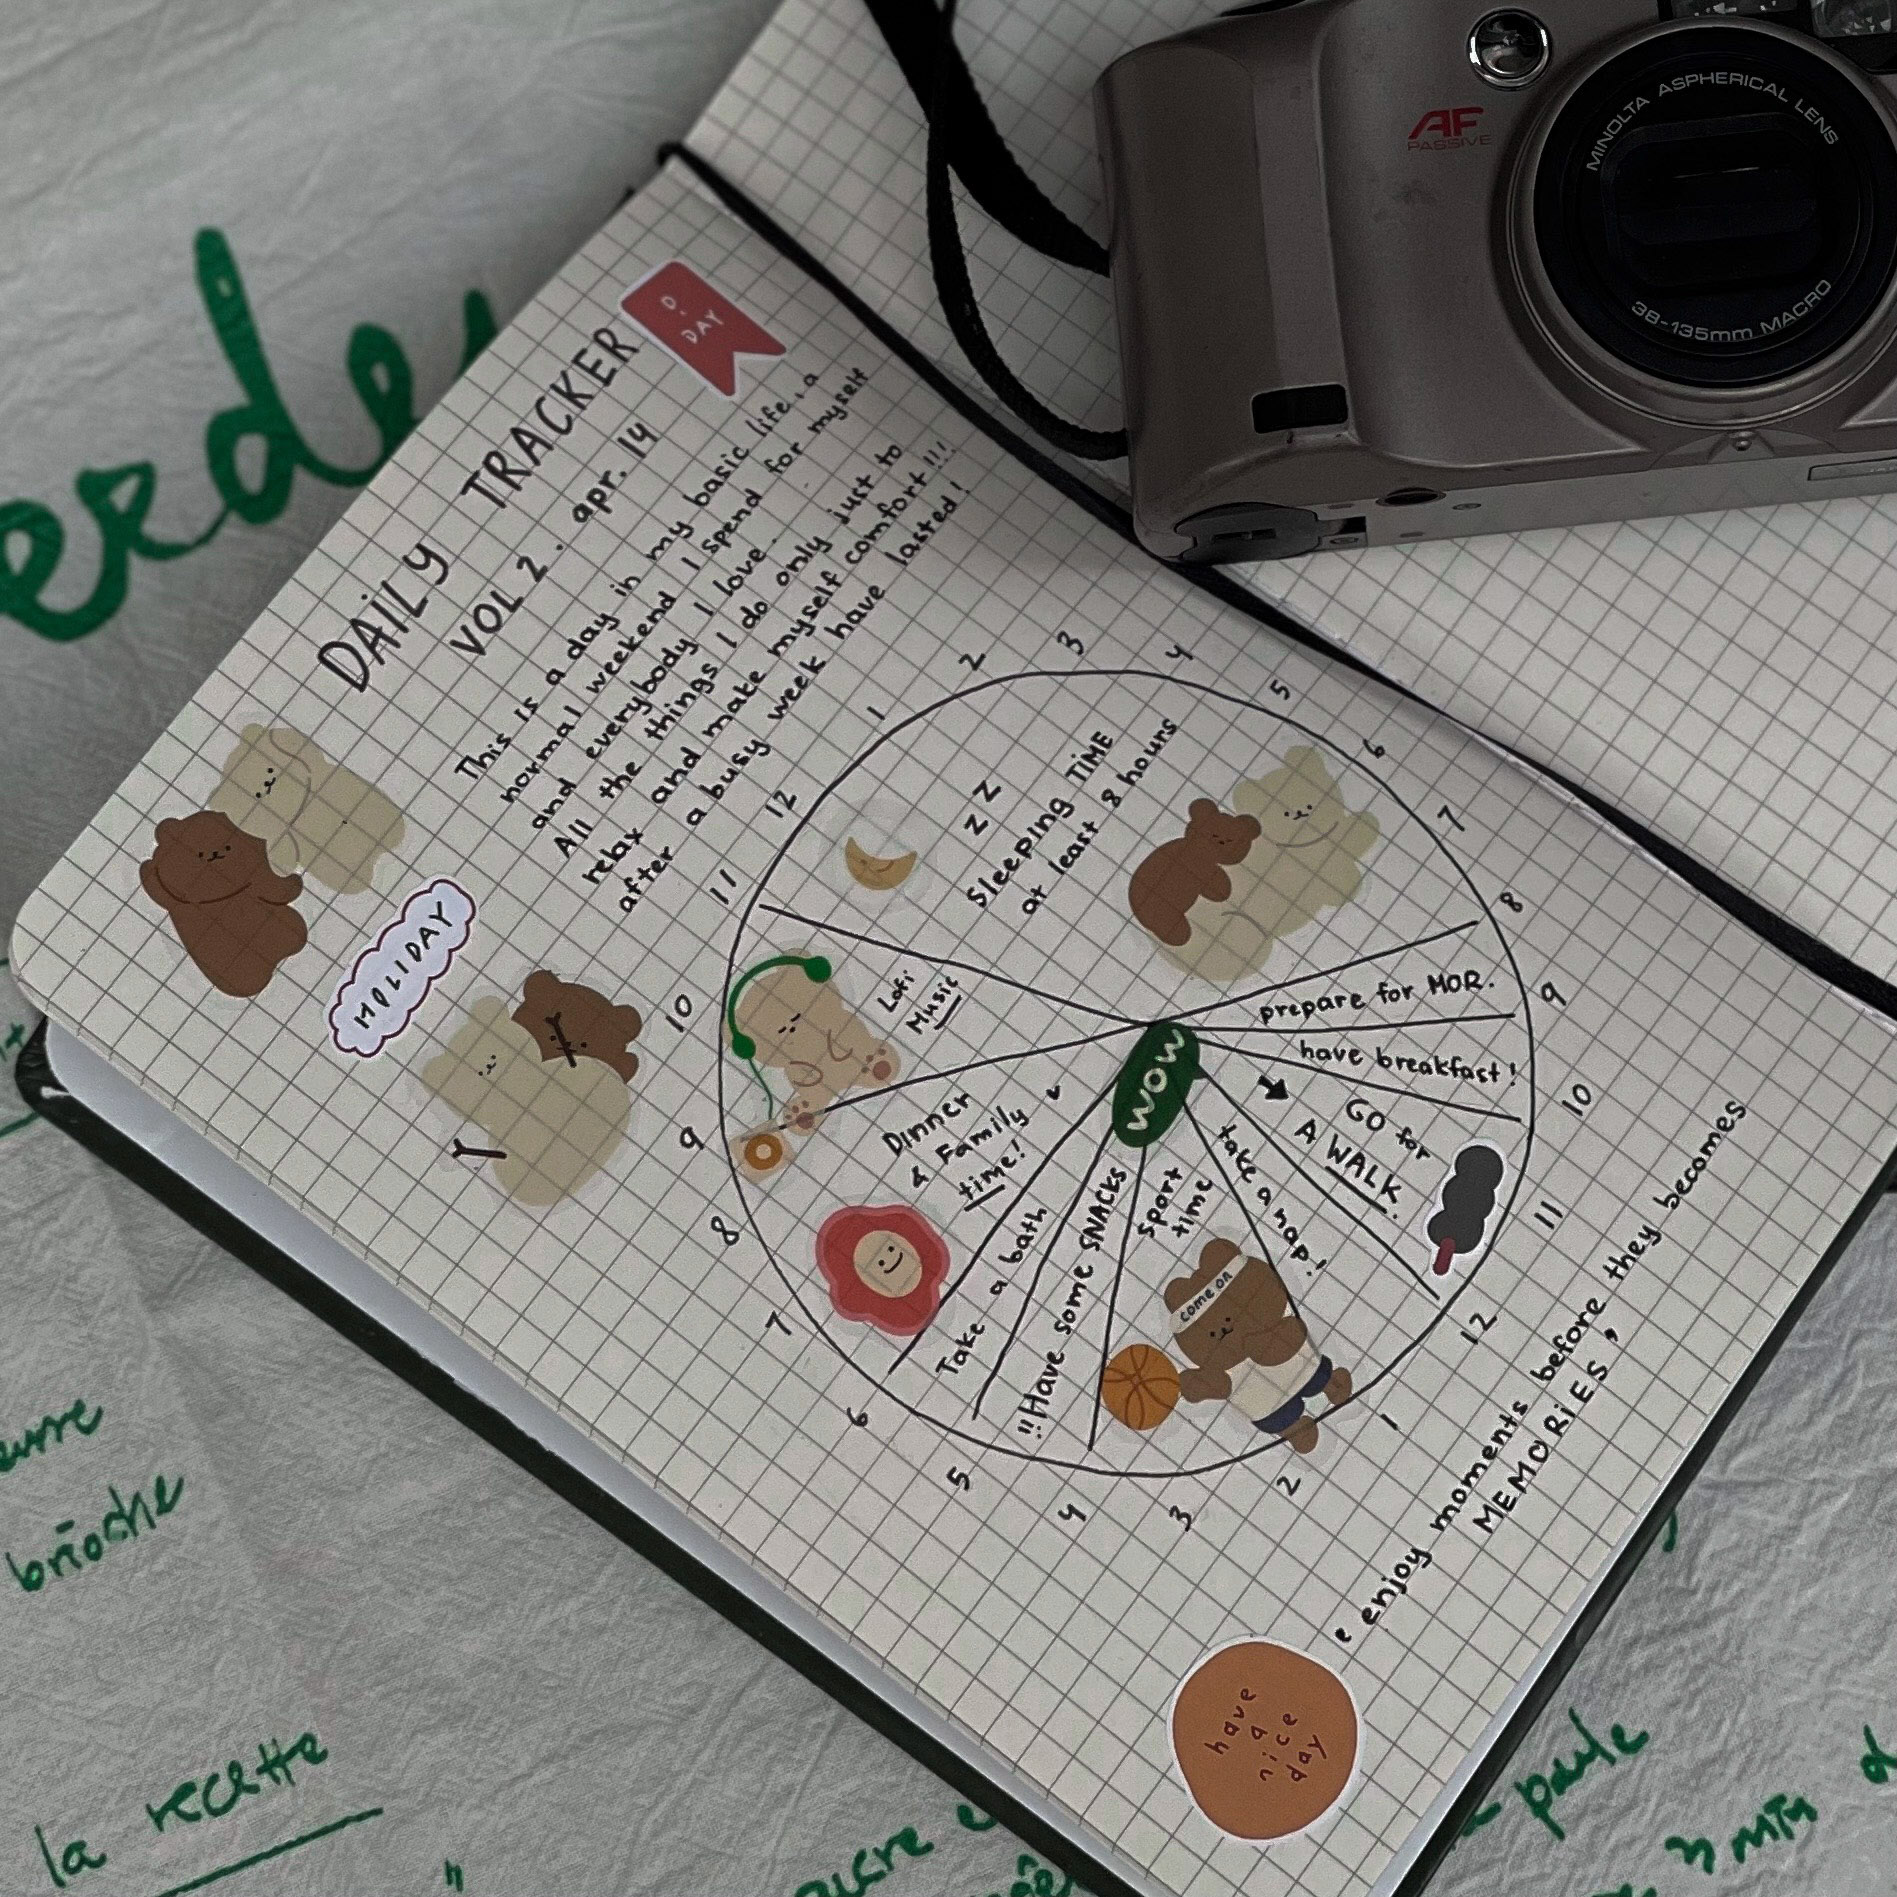 DAILY TRACKER
D.
DAY
VOL 2 . apr. 14
This is a day in my basic life, a
normal weekend I spend for myself
and everybody I love.
All the things I do only just to
relax and make myself comfort!!!
after a busy week have lasted!
HOLIDAY
12
1
2
3
4
5
6
7
8
9
10
11
12
1
2
3
4
5
6
7
8
9
10
11
z z
Sleeping TIME
at least 8 hours
prepare for MOR.
have breakfast!
GO for
A WALK.
take a nap!
sport
time
come on
!!Have some SNACKS
Take a bath
Dinner
& Family
time!
Lofi
Music
WOW
enjoy moments before they becomes
MEMORIES
have
a
nice
day
AF
PASSIVE
MINOLTA ASPHERICAL LENS
38-135mm MACRO
brioche
la recette